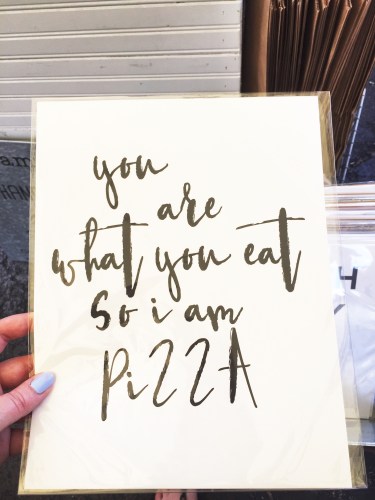 you
are
what you eat
so i am
PiZZA
a.m.
HAN
H